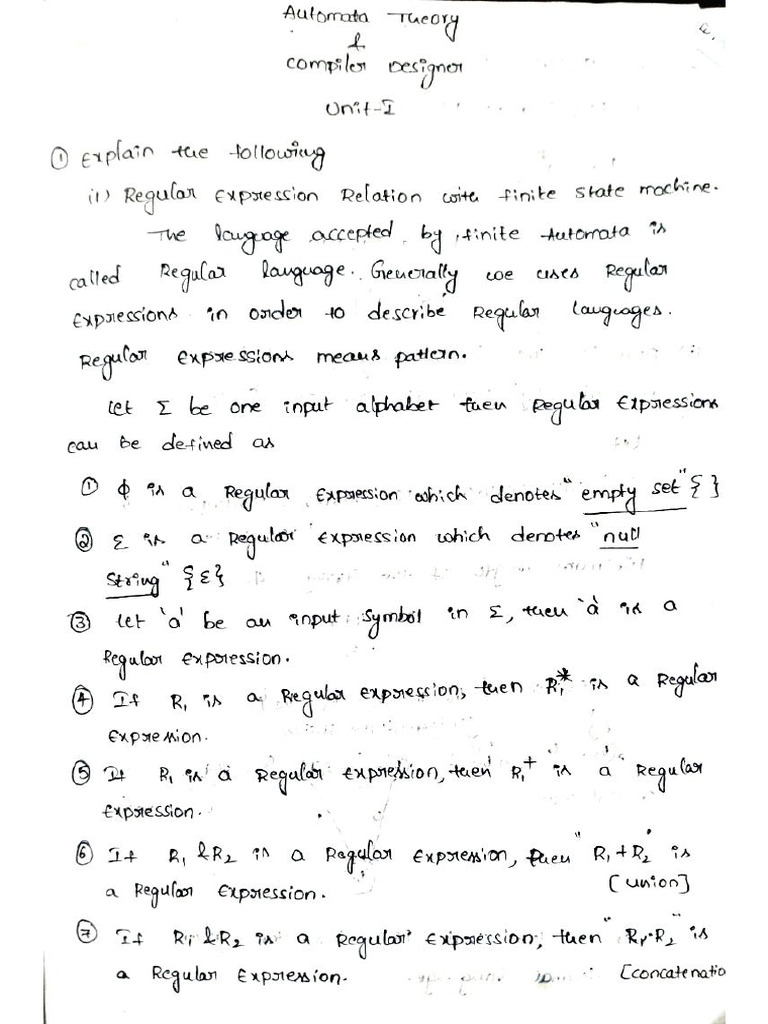 Automata Theory
&
Compiler Designer
Unit-I
① Explain the following
(1) Regular Expression Relation with finite state machine.
The language accepted by finite Automata is
called Regular language. Generally we uses Regular
Expressions in order to describe Regular languages.
Regular Expressions means pattern.
Let Σ be one input alphabet then Regular Expressions
can be defined as
① ϕ is a Regular Expression which denotes "empty set" { }
② Σ is a Regular Expression which denotes "null
String" {ε}
③ Let 'a' be an input symbol in Σ, then 'a' is a
Regular Expression.
④ If R₁ is a Regular expression, then R₁* is a Regular
Expression.
⑤ If R₁ is a Regular Expression, then R₁⁺ is a Regular
Expression.
⑥ If R₁ & R₂ is a Regular Expression, then "R₁+R₂" is
a Regular Expression. [union]
⑦ If R₁ & R₂ is a Regular Expression, then "R₁.R₂" is
a Regular Expression. [concatenatio